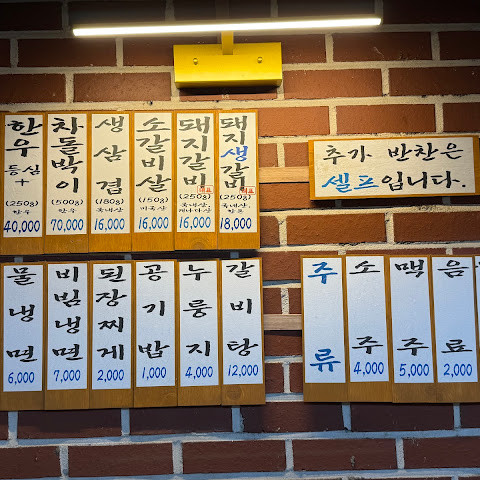 한우 등심+ (250g) 한우 40,000
차돌박이 (500g) 한우 70,000
생삼겹 (180g) 국내산 16,000
소갈비살 (150g) 미국산 16,000
돼지갈비 (250g) 16,000
돼지생갈비 (250g) 국내산, 18,000
추가 반찬은
셀프입니다.
물냉면 6,000
비빔냉면 7,000
된장찌게 2,000
공기밥 1,000
누룽지 4,000
갈비탕 12,000
주류
소주 4,000
맥주 5,000
음료 2,000